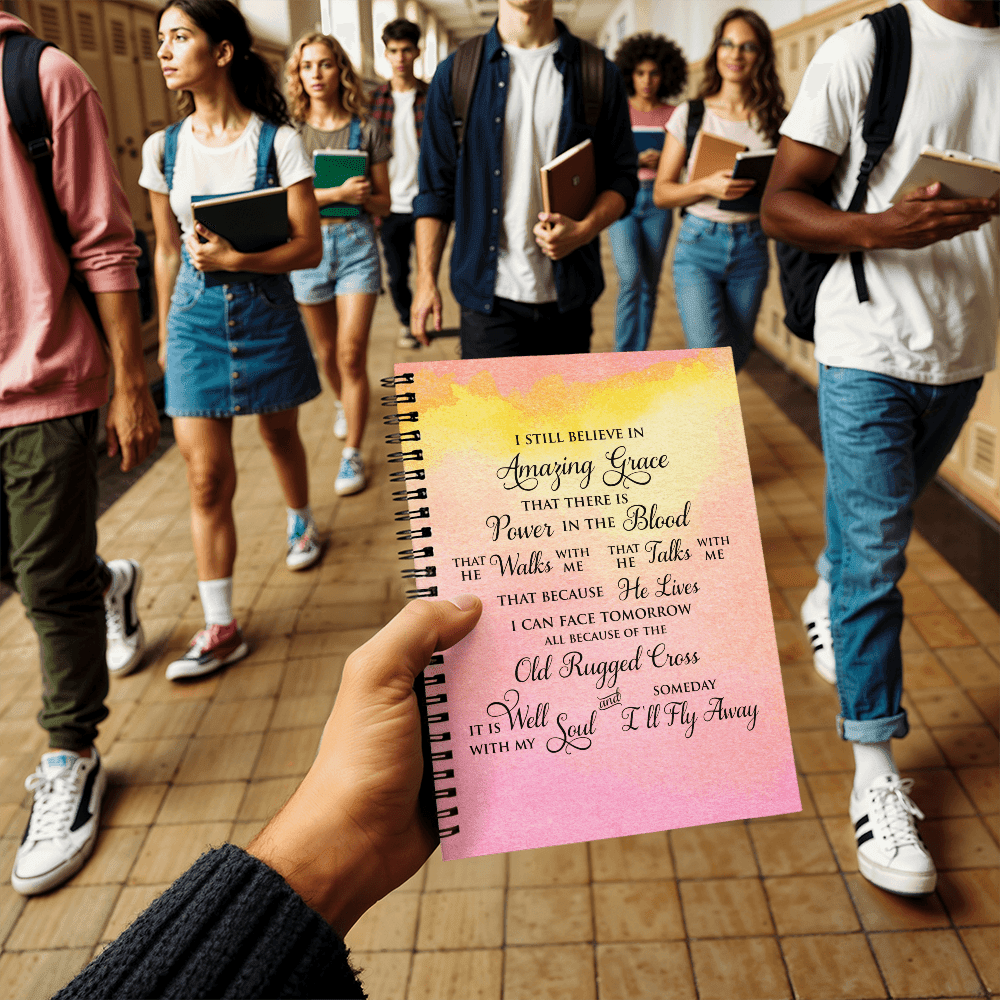 I STILL BELIEVE IN
Amazing Grace
THAT THERE IS
Power IN THE Blood
THAT HE Walks WITH ME THAT HE Talks WITH ME
THAT BECAUSE He Lives
I CAN FACE TOMORROW
ALL BECAUSE OF THE
Old Rugged Cross
IT IS Well WITH MY Soul and SOMEDAY I'll Fly Away